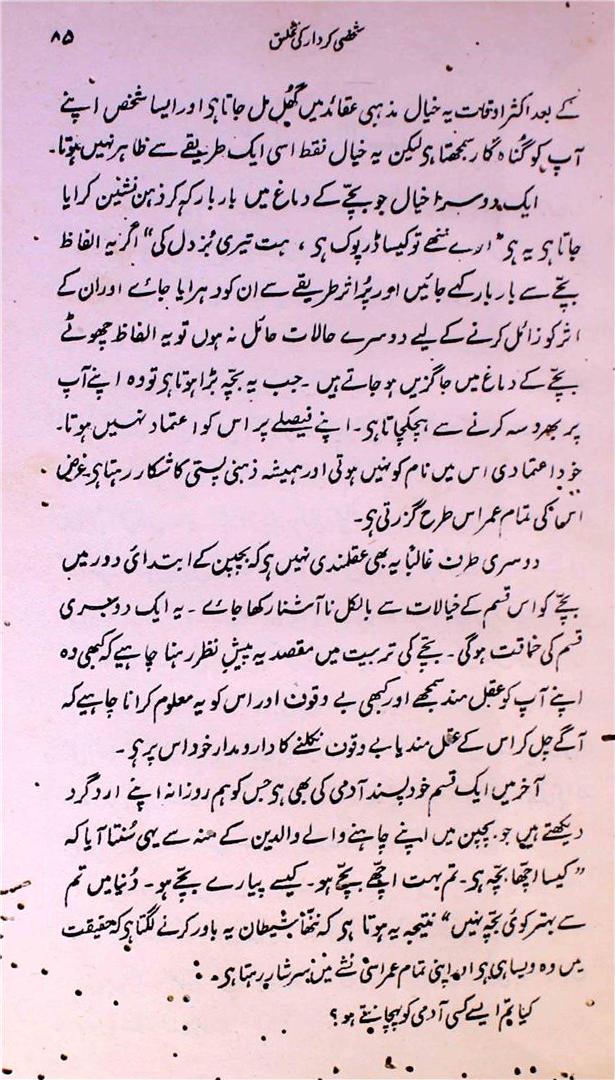 شخصی کردار کی تخلیق ۸۵
کے بعد اکثر اوقات یہ خیال مذہبی عقائد میں گھل مل جاتا ہی اور ایسا شخص اپنے
آپ کو گناہ گار سمجھتا ہی لیکن یہ خیال فقط اسی ایک طریقے سے ظاہر نہیں ہوتا۔
ایک دوسرا خیال جو بچّے کے دماغ میں بار بار کہہ کر ذہن نشین کرایا
جاتا ہی یہ ہی "ارے ننھے تو کیسا ڈرپوک ہی، ہت تیری بُزدل کی" اگر یہ الفاظ
بچّے سے بار بار کہے جائیں اور پُراثر طریقے سے ان کو دہرایا جائے اور ان کے
اثر کو زائل کرنے کے لیے دوسرے حالات حائل نہ ہوں تو یہ الفاظ چھوٹے
بچّے کے دماغ میں جاگزیں ہو جاتے ہیں۔ جب یہ بچّہ بڑا ہوتا ہی تو وہ اپنے آپ
پر بھروسہ کرنے سے ہچکچاتا ہی۔ اپنے فیصلے پر اس کو اعتماد نہیں ہوتا۔
خود اعتمادی اس میں نام کو نہیں ہوتی اور ہمیشہ ذہنی پستی کا شکار رہتا ہی۔ غرض
اس کی تمام عمر اس طرح گزرتی ہی۔
دوسری طرف غالباً یہ بھی عقلمندی نہیں ہی کہ بچپن کے ابتدائی دور میں
بچّے کو اس قسم کے خیالات سے بالکل ناآشنا رکھا جائے۔ یہ ایک دوسری
قسم کی حماقت ہوگی۔ بچّے کی تربیت میں مقصد یہ پیشِ نظر رہنا چاہیے کہ کبھی وہ
اپنے آپ کو عقل مند سمجھے اور کبھی بے وقوف اور اس کو یہ معلوم کرانا چاہیے کہ
آگے چل کر اس کے عقل مند یا بے وقوف نکلنے کا دارومدار خود اس پر ہی۔
آخر میں ایک قسم خود پسند آدمی کی بھی ہی جس کو ہم روزانہ اپنے اردگرد
دیکھتے ہیں جو بچپن میں اپنے چاہنے والے والدین کے منہ سے یہی سُنتا آیا کہ
"کیسا اچھا بچّہ ہی۔ تم بہت اچھّے بچّے ہو۔ کیسے پیارے بچّے ہو۔ دُنیا میں تم
سے بہتر کوئی بچّہ نہیں" نتیجہ یہ ہوتا ہی کہ ننھا شیطان یہ باور کرنے لگتا ہی کہ حقیقت
میں وہ ویسا ہی ہی اور اپنی تمام عمر اسی نشے میں سرشار رہتا ہی۔
کیا تم ایسے کسی آدمی کو پہچانتے ہو؟